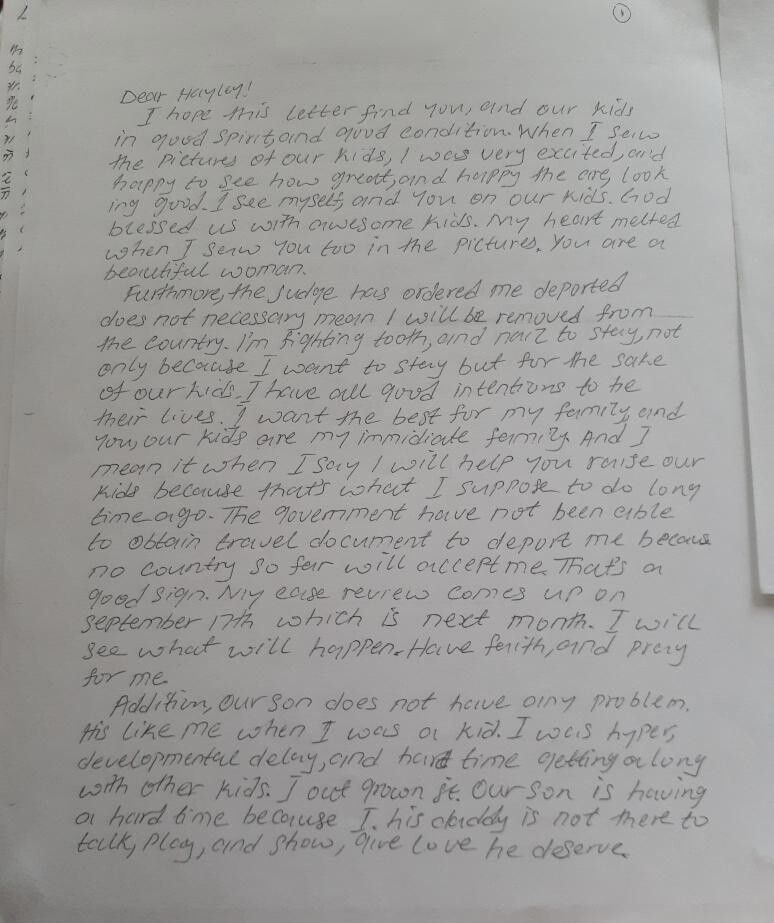 ①
Dear Hayley!
I hope this letter find you, and our kids
in good spirit, and good condition. When I saw
the pictures of our kids, I was very excited, and
happy to see how great, and happy the are, look
ing good. I see myself, and you on our kids. God
blessed us with awesome kids. My heart melted
when I saw you too in the pictures. You are a
beautiful woman.
Furthmore, the judge has ordered me deported
does not necessary mean I will be removed from
the country. I'm fighting tooth, and nail to stay, not
only because I want to stay but for the sake
of our kids. I have all good intentions to be
their lives. I want the best for my family, and
you, our kids are my immidiate family. And I
mean it when I say I will help you raise our
kids because that's what I suppose to do long
time ago. The government have not been able
to obtain travel document to deport me becaus
no country so far will accept me. That's a
good sign. My case review comes up on
september 17th which is next month. I will
see what will happen. Have faith, and pray
for me.
Addition, our son does not have any problem.
His like me when I was a kid. I was hyper,
developmental delay, and hard time getting along
with other kids. I out grown it. Our son is having
a hard time because I, his daddy is not there to
talk, play, and show, give love he deserve.